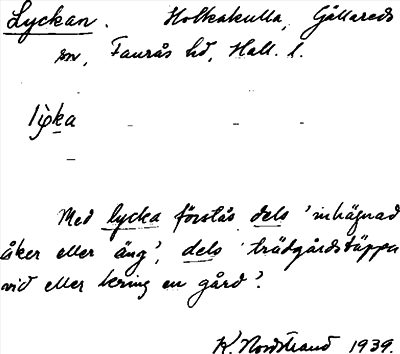 Lyckan. Holkakulla, Gällareds
sn, Faurås hd, Hall. l.
lẏ̀ka - - -
-
Med lycka förstås dels 'inhägnad
åker eller äng', dels 'trädgårdstäppa
vid eller kring en gård'.
K. Nordstrand 1939.